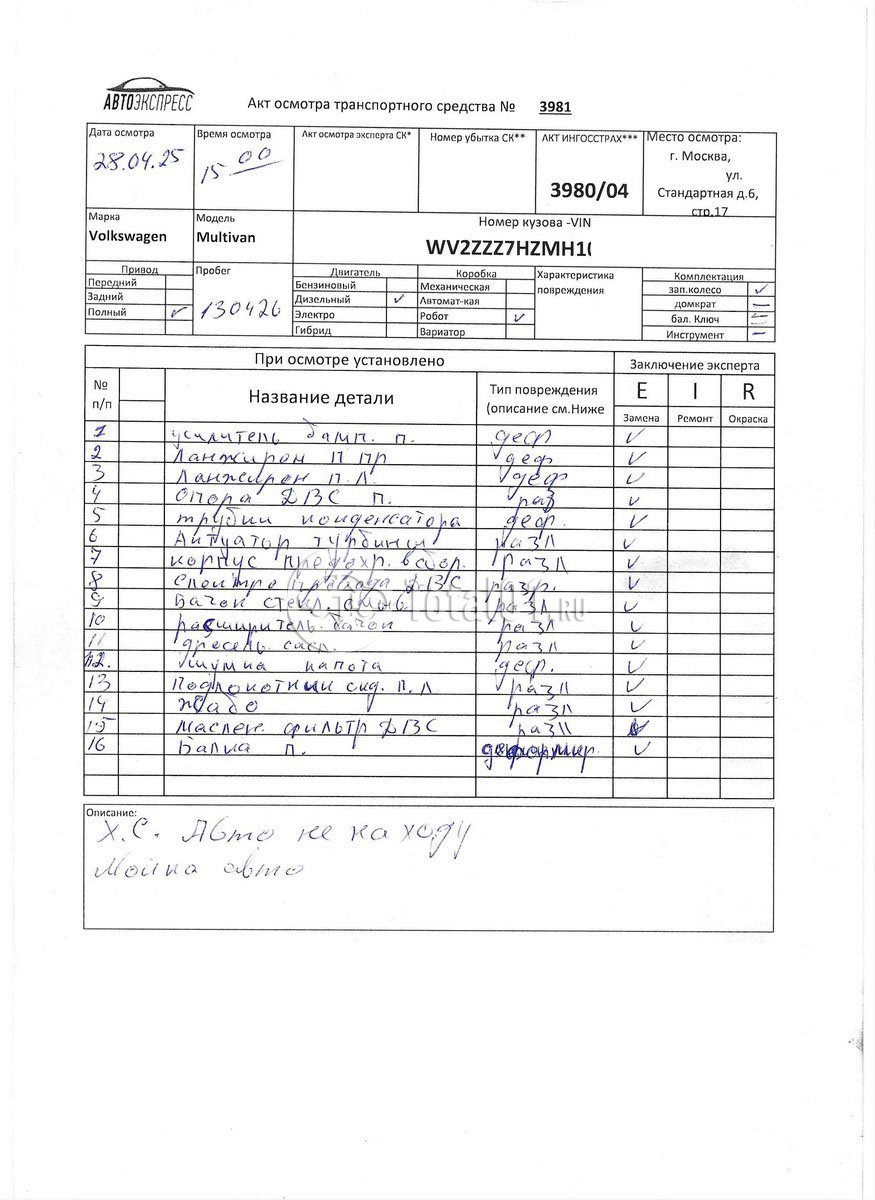 АВТОЭКСПРЕСС
Акт осмотра транспортного средства № 3981
Дата осмотра
28.04.25
Время осмотра
15 00
Акт осмотра эксперта СК*
Номер убытка СК**
АКТ ИНГОССТРАХ***
3980/04
Место осмотра:
г. Москва,
ул.
Стандартная д.6,
стр.17
Марка
Volkswagen
Модель
Multivan
Номер кузова -VIN
WV2ZZZ7HZMH1
Привод
Передний
Задний
Полный ✓
Пробег
130426
Двигатель
Бензиновый
Дизельный ✓
Электро
Гибрид
Коробка
Механическая
Автомат-кая
Робот ✓
Вариатор
Характеристика
повреждения
Комплектация
зап.колесо ✓
домкрат —
бал. Ключ —
Инструмент —
При осмотре установлено
Заключение эксперта
№
п/п
Название детали
Тип повреждения
(описание см.Ниже
E I R
Замена Ремонт Окраска
1 усилитель бамп. п. деф ✓
2 Ланжирон П пр деф ✓
3 Ланжирон п.л. деф ✓
4 Опора ДВС п. раз ✓
5 трубки конденсатора деф. ✓
6 Актуатор турбины разл ✓
7 корпус предохр. в сбор. разл ✓
8 Электро провода ДВС разр. ✓
9 Бачок стекл. разл ✓
10 расширитель. бачок разл ✓
11 дресель. разл ✓
12. шумка капота деф. ✓
13 Подлокотник сид. п.л разл ✓
14 Жабо разл ✓
15 Маслен. фильтр ДВС разл ✓
16 Балка п. деформир. ✓
Описание:
Х.С. Авто не на ходу
Мойка авто
TOTAL01.RU